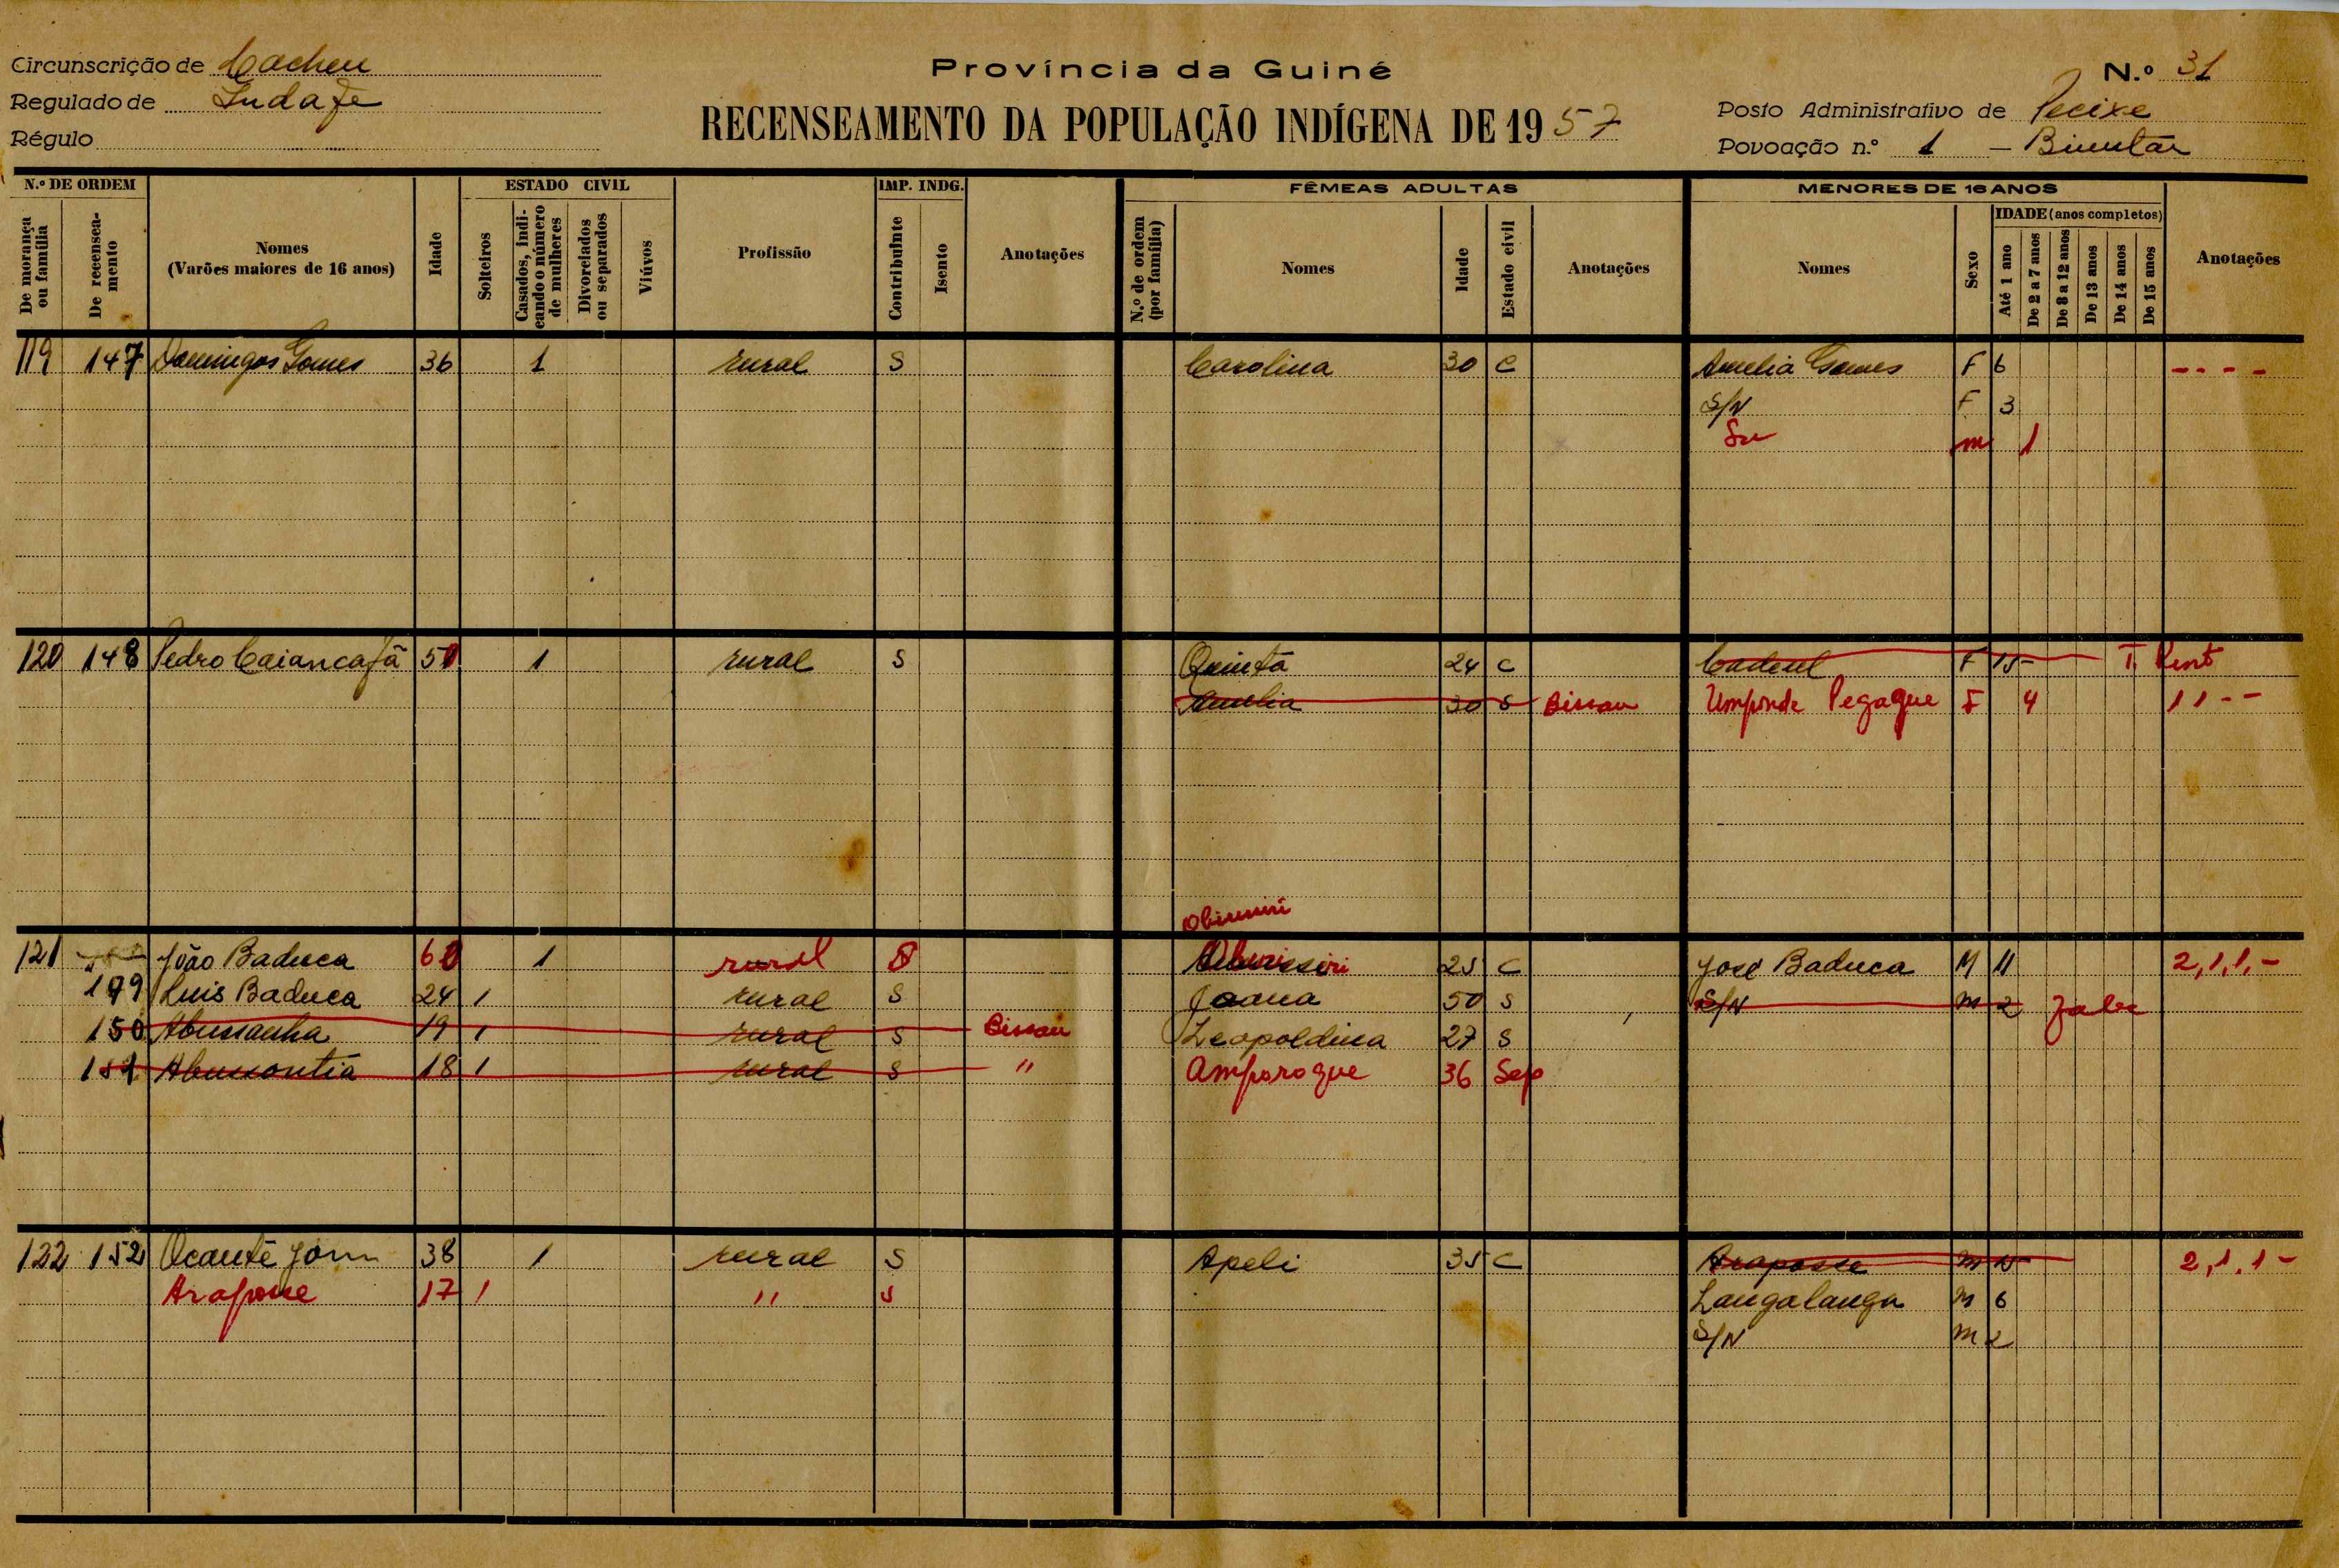 Circunscrição de Cacheu
Regulado de Indafe
Régulo
Província da Guiné
RECENSEAMENTO DA POPULAÇÃO INDÍGENA DE 1957
N.º 31
Posto Administrativo de Pecixe
Povoação n.º 1 – Bimutar
N.º DE ORDEM
De morança ou família
De recenseamento
Nomes
(Varões maiores de 16 anos)
Idade
ESTADO CIVIL
Solteiros
Casados, indicando o número de mulheres
Divorciados ou separados
Viúvos
Profissão
IMP. INDG.
Contribuinte
Isento
Anotações
FÊMEAS ADULTAS
N.º de ordem (por família)
Nomes
Idade
Estado civil
Anotações
MENORES DE 16 ANOS
Nomes
Sexo
IDADE (anos completos)
Até 1 ano
De 2 a 7 anos
De 8 a 12 anos
De 13 anos
De 14 anos
De 15 anos
Anotações
119 147 Domingos Gomes 36 1 rural S Carolina 30 C Amelia Gomes F 6 - - - -
S/N F 3
m 1
120 148 Pedro Caiancafã 50 1 rural S Quinta 24 C F 15
Amelia 30 S Bissau Umponde Pegague F 4 1 1 - -
121 João Baduca 60 1 rural S 25 C José Baduca M 11 2,1,1,-
149 Luis Baduca 24 1 rural S Joana 50 S S/N m 2
150 Abussanha 19 1 rural S Bissau Leopoldina 27 S
151 Abussontia 18 1 rural S " Amparoque 36 Sep
122 152 Ocante Jom 38 1 rural S Apeli 35 C Araposse m 15 2,1,1-
Araposse 17 1 " S Langalanga m 6
S/N m 2